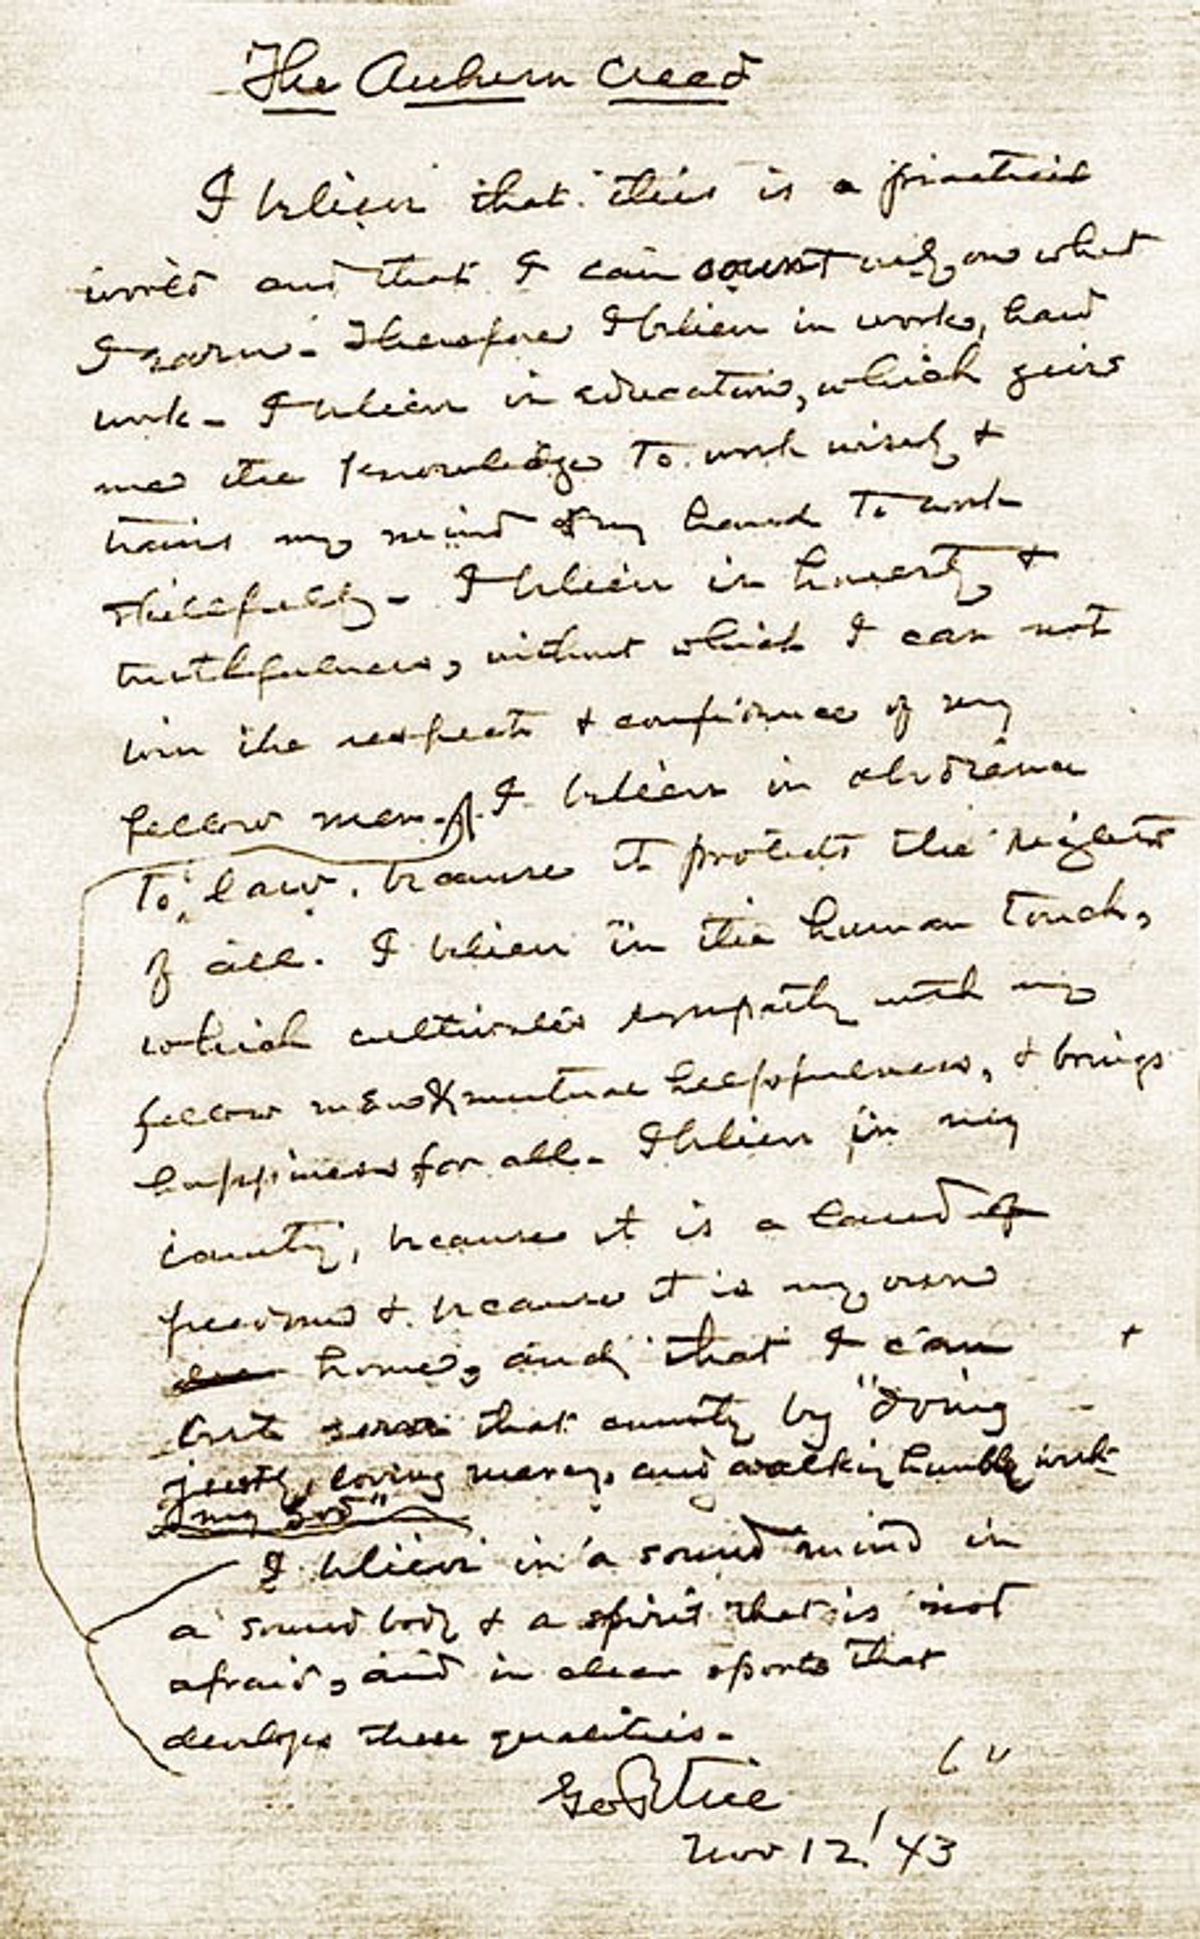 The Auburn Creed
I believe that this is a practical
world and that I can count only on what
I earn. Therefore I believe in work, hard
work. I believe in education, which gives
me the knowledge to work wisely &
trains my mind & my hands to work
skillfully. I believe in honesty &
truthfulness, without which I can not
win the respect & confidence of my
fellow men. I believe in obedience
to law, because it protects the rights
of all. I believe in the human touch,
which cultivates sympathy with my
fellow men & mutual helpfulness, & brings
happiness for all. I believe in my
country, because it is a land of
freedom & because it is my own
home, and that I can
best serve that country by "doing
justly, loving mercy, and walking humbly with
my God"
I believe in a sound mind in
a sound body & a spirit that is not
afraid, and in clean sports that
develops these qualities.
Geo Petrie
Nov 12, '43